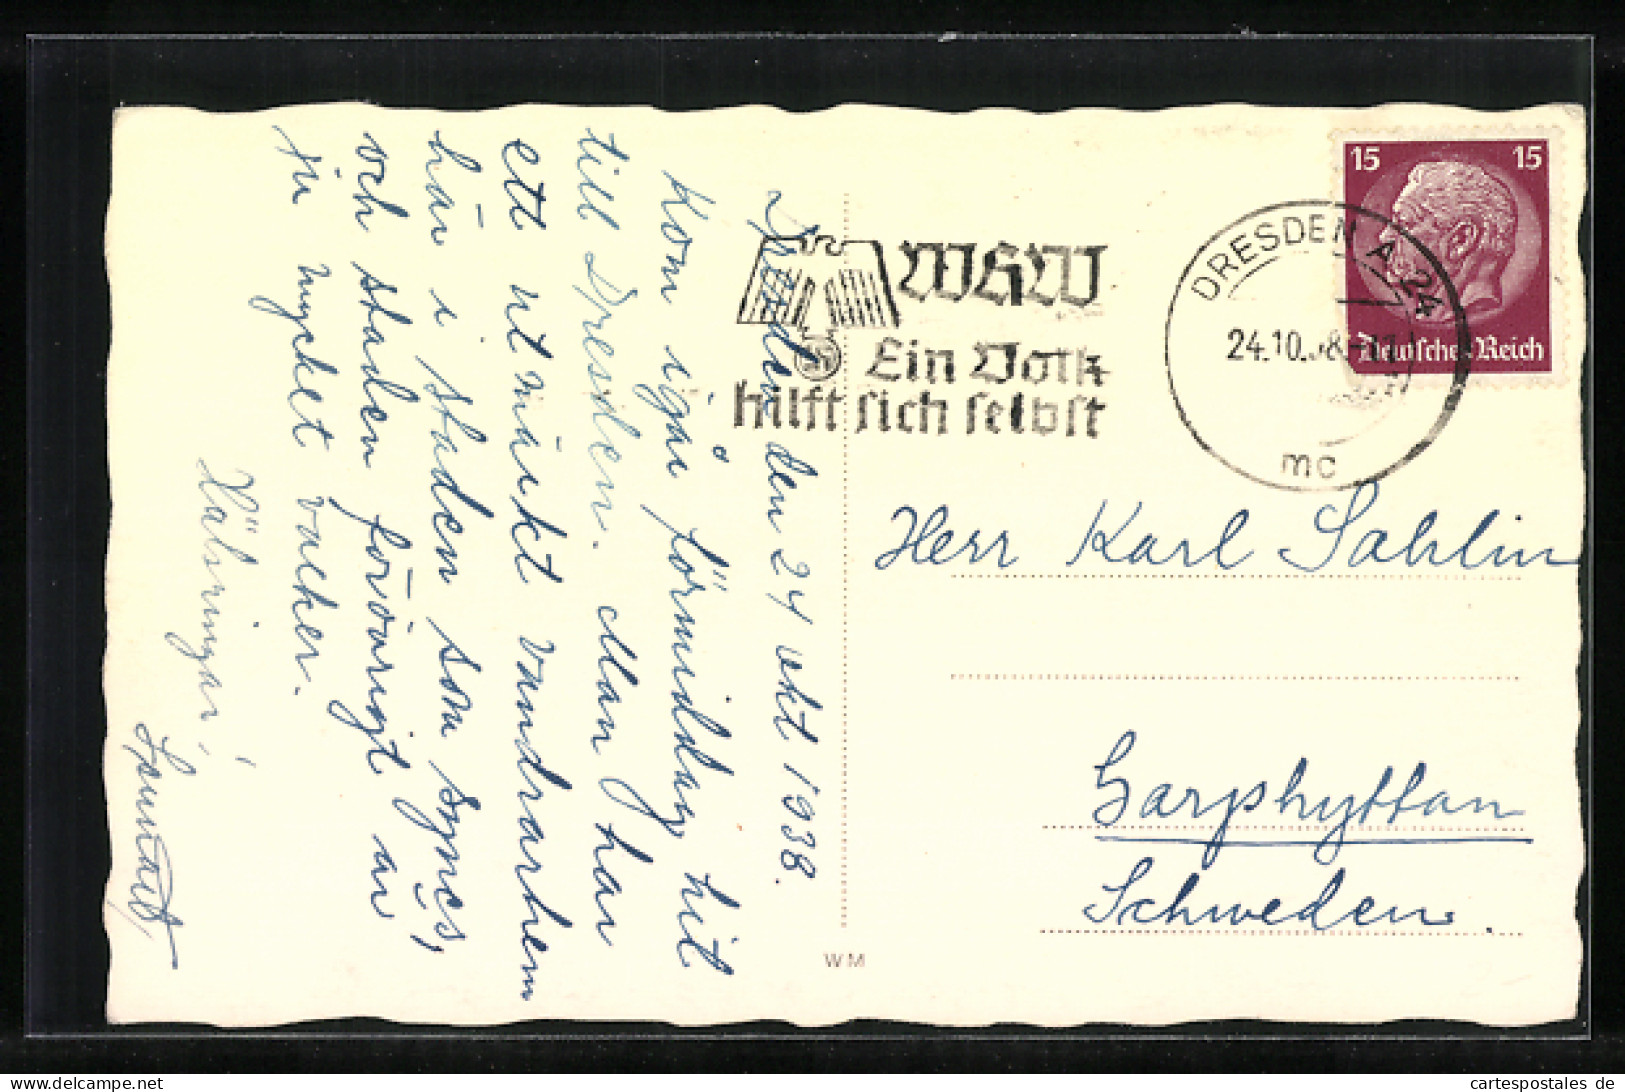 Dresden den 24 okt 1938.
Kom igår förmiddag hit
till Dresden. Man har
ett utmärkt vandrarhem
här i staden som synes,
och staden förövrigt är
ju mycket vacker.
Hälsningar,
WHW
Ein Volk
hilft sich selbst
DRESDEN A 24
24.10.38
mc
15 15
Deutsches Reich
Herr Karl Sahlin
Garphyttan
Schweden.
WM
www.cartespostales.de
cartespostales de